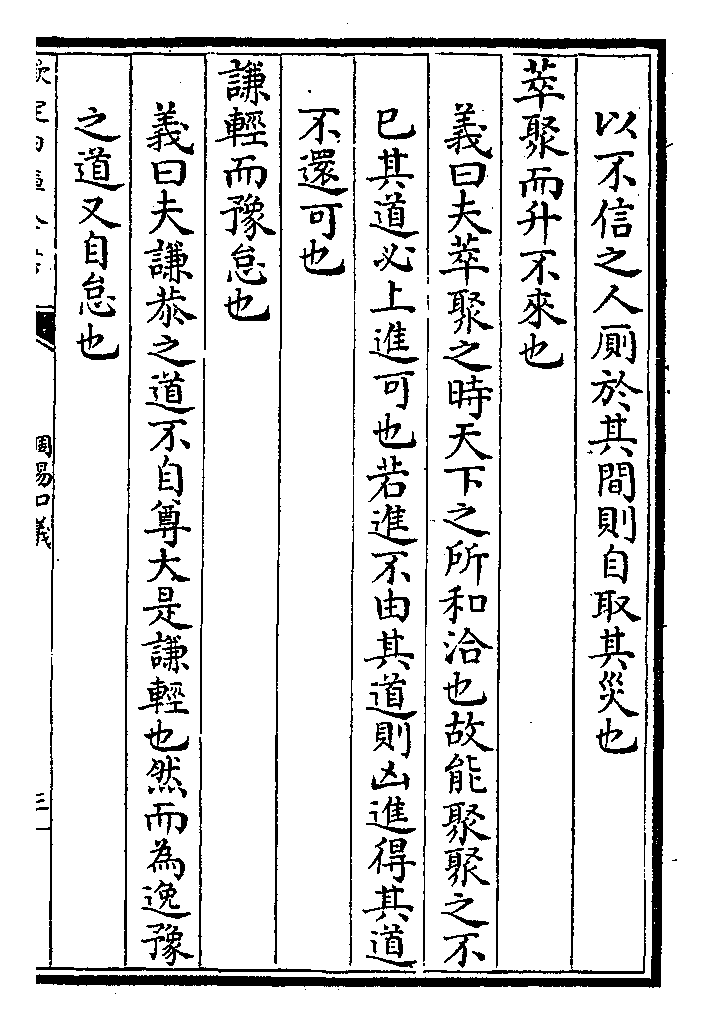 以不信之人厠於其間則自取其災也
萃聚而升不來也
義曰夫萃聚之時天下之所和洽也故能聚聚之不
已其道必上進可也若進不由其道則凶進得其道
不還可也
謙輕而豫怠也
義曰夫謙恭之道不自尊大是謙輕也然而為逸豫
之道又自怠也
周易口義